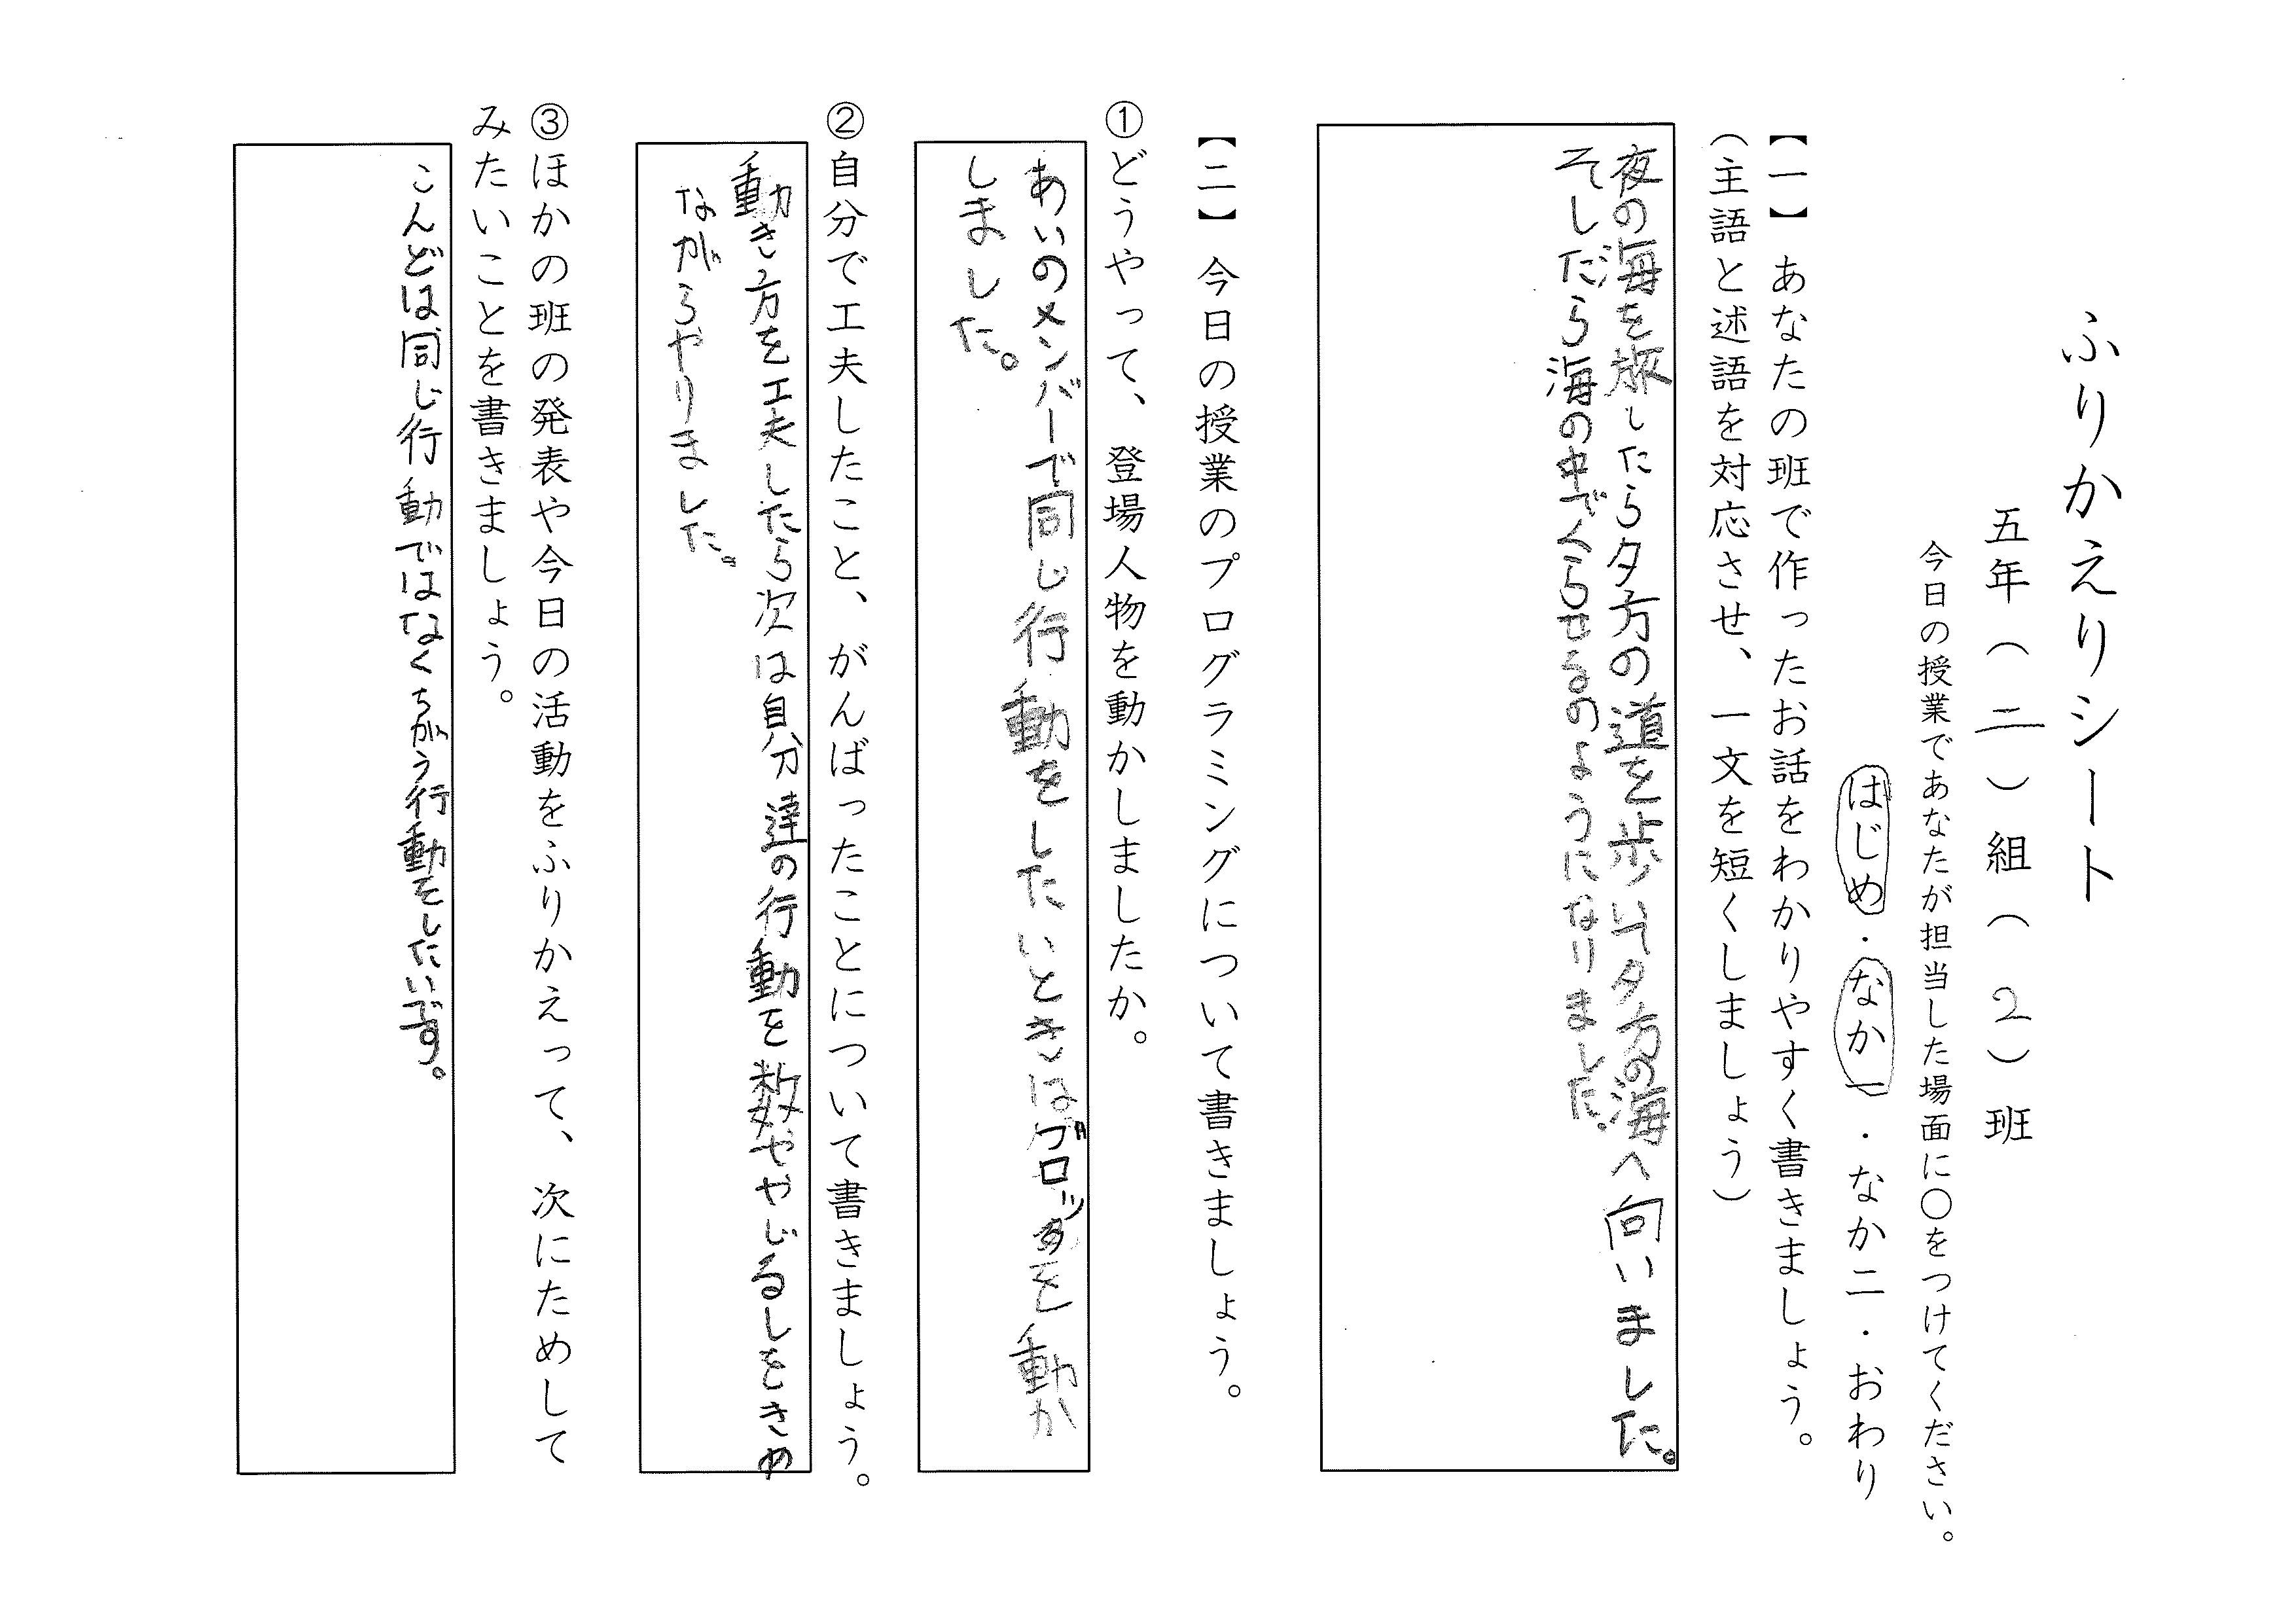 ふりかえりシート
五年(二)組(2)班
今日の授業であなたが担当した場面に〇をつけてください。
はじめ・なか一・なか二・おわり
【一】あなたの班で作ったお話をわかりやすく書きましょう。
(主語と述語を対応させ、一文を短くしましょう)
夜の海を旅したら夕方の道を歩いて夕方の海へ向いました。
そしたら海の中でくらせるのようになりました。
【二】今日の授業のプログラミングについて書きましょう。
①どうやって、登場人物を動かしましたか。
あいのメンバーで同じ行動をしたいときはブロックを動か
しました。
②自分で工夫したこと、がんばったことについて書きましょう。
動き方を工夫したら次は自分達の行動を数ややじるしをきめ
ながらやりました。
③ほかの班の発表や今日の活動をふりかえって、次にためして
みたいことを書きましょう。
こんどは同じ行動ではなくちがう行動をしたいです。